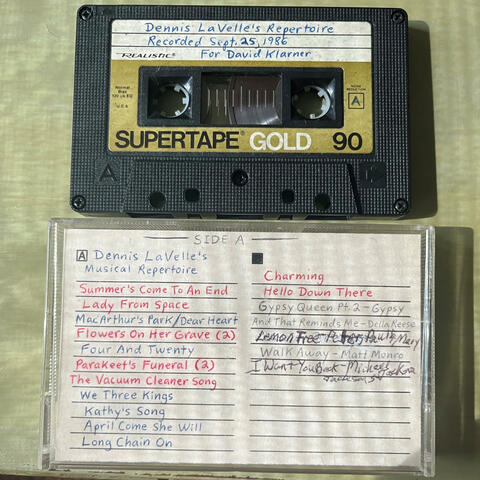 Dennis LaVelle's Repertoire
Recorded Sept. 25, 1986
REALISTIC® For David Klarner
Normal
Bias
120 µs EQ
U.S.A.
NOISE
REDUCTION
A
SUPERTAPE® GOLD 90
A
SIDE A
A Dennis LaVelle's
Musical Repertoire
Summer's Come To An End
Lady From Space
MacArthur's Park/Dear Heart
Flowers On Her Grave (2)
Four And Twenty
Parakeet's Funeral (2)
The Vacuum Cleaner Song
We Three Kings
Kathy's Song
April Come She Will
Long Chain On
Charming
Hello Down There
Gypsy Queen Pt. 2 - Gypsy
And That Reminds Me - Della Reese
Lemon Tree Peter, Paul & Mary
Walk Away - Matt Monro
I Want You Back - Michael Jackson
Jackson 5